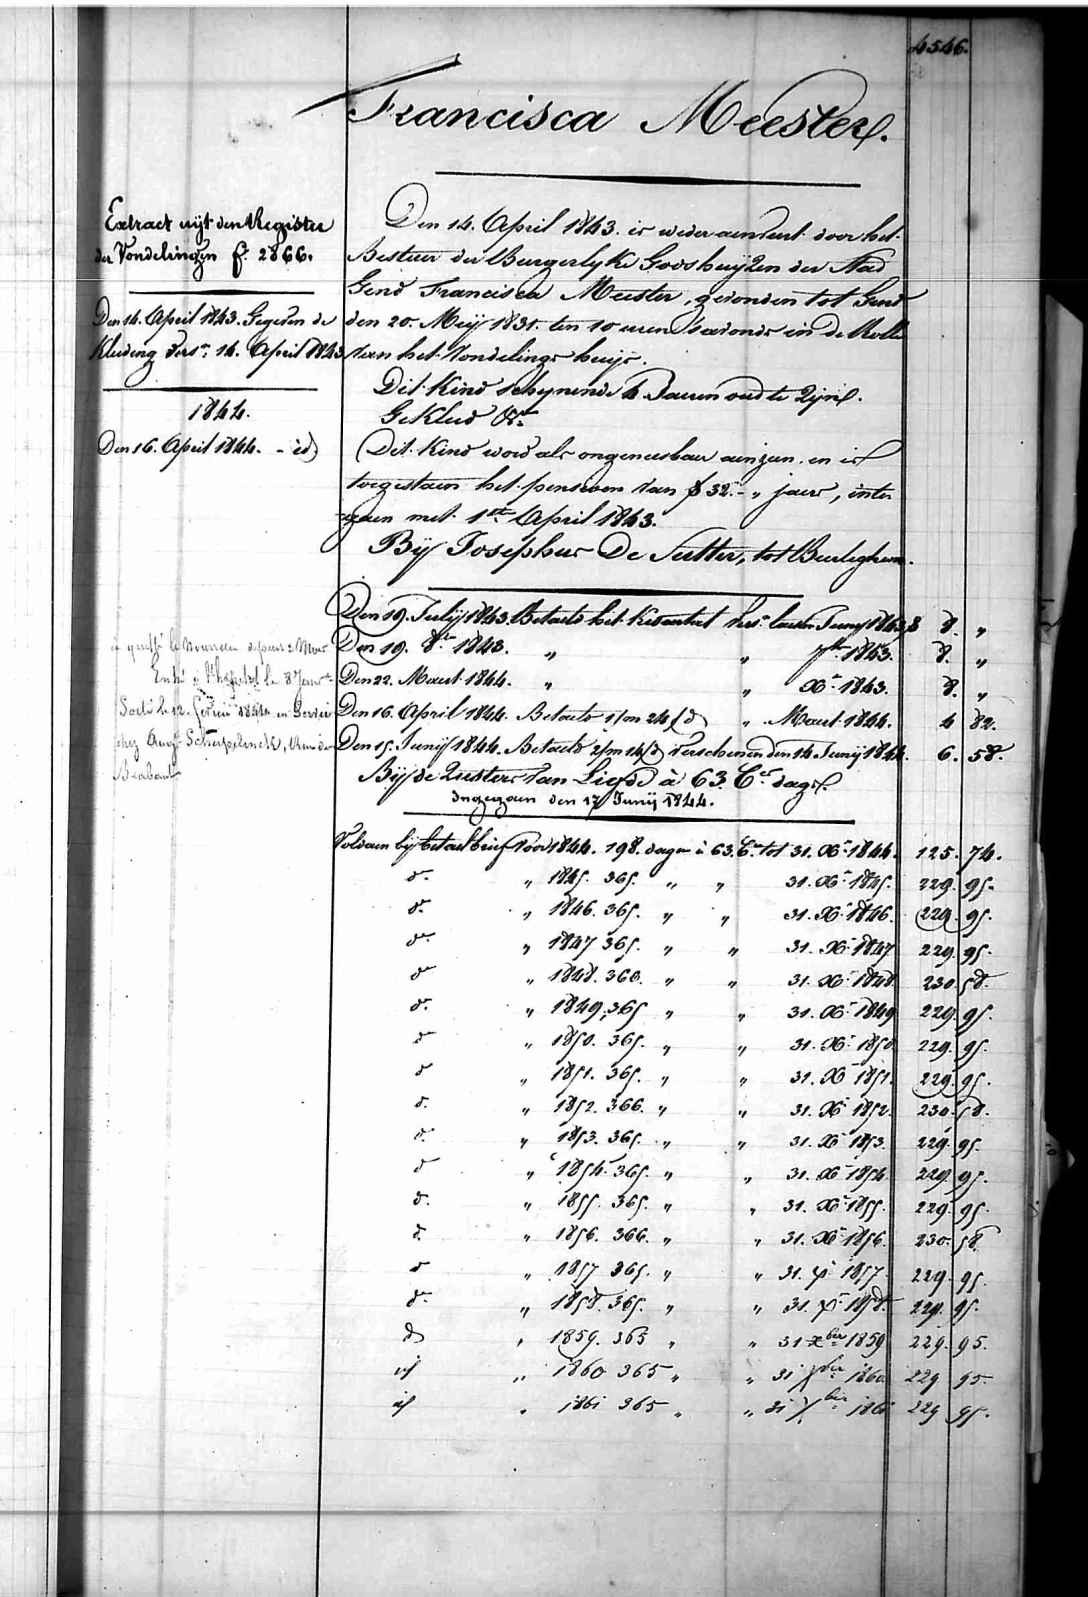 4546.
Francisca Meester.
Extract uijt den Register
der Vondelingen f. 2866.
Den 14. April 1843. Gegeven de
Kleding Vers.n 14. April 1843
1844.
Den 16. April 1844. - id
Den 14. April 1843. is weder aenveert door het
Bestuer der Burgerlyke Godshuijzen der Stad
Gend Francisca Meester, gevonden tot Gend
den 20. Meij 1831. ten 10 uren s'avonds in de Rolle
van het Vondelings huijs.
Dit Kind schynende 4 Jaeren oud te Zijn.
Gekleed &a
Dit Kind word als ongeneesbaer aenzien en is
toegestaen het pensioen van 32 - " jaers, inte
gaen met 1.ste April 1843.
Bij Josephus De Sutter, tot Beerleghem.
Den 19. Julij 1843. Betaeld het Kwartael vers.n laesten Junij 1843 8. "
Den 19. 8.bre 1843. " " 7.bre 1843. 8. "
Den 22. Maert 1844. " " X.bre 1843. 8. "
Den 16. April 1844. Betaeld 1/m 24/d " Maert 1844. 4 82.
Den 15. Junij 1844. Betaeld 2/m 14/d verschenen den 14 Junij 1844. 6. 58.
Bij de Zusters van Liefde à 63. C.en daegs.
Ingegaen den 17 Junij 1844.
à quitté le depuis 2 Mois
Entré à l'hôpital le 8 Janv.
Sorti le 12. 1844 en Service
chez Aug. Scherpelinck, Rue de
Brabant
Voldaen bij betaelbrief Voor 1844. 198. dagen à 63. C.en tot 31. X.bre 1844. 125. 74.
d.o " 1845. 365. " " 31. X.bre 1845. 229. 95.
d.o " 1846. 365. " " 31. X.bre 1846. 229. 95.
d.o " 1847 365. " " 31. X.bre 1847 229. 95.
d.o " 1848. 366. " " 31. X.bre 1848. 230. 58.
d.o " 1849. 365 " " 31. X.bre 1849 229. 95.
d.o " 1850. 365. " " 31. X.bre 1850 229. 95.
d.o " 1851. 365. " " 31. X.bre 1851. 229. 95.
d.o " 1852. 366. " " 31. X.bre 1852. 230. 58.
d.o " 1853. 365. " " 31. X.bre 1853. 229. 95.
d.o " 1854. 365. " " 31. X.bre 1854. 229. 95.
d.o " 1855. 365. " " 31. X.bre 1855. 229. 95.
d.o " 1856. 366. " " 31. X.bre 1856. 230. 58
d.o " 1857 365. " " 31. X.bre 1857. 229. 95.
d.o " 1858. 365. " " 31. X.bre 1858. 229. 95.
d.o " 1859. 365 " " 31 Xbre 1859 229. 95.
id " 1860 365 " " 31 Xbre 1860 229 95.
id " 1861 365 " " 31 Xbre 1861 229 95.